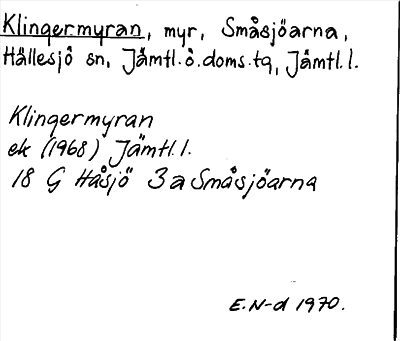 Klingermyran, myr, Småsjöarna,
Hällesjö sn, Jämtl.ö.doms.tg, Jämtl.l.
Klingermyran
ek (1968) Jämtl.l.
18 G Håsjö 3a Småsjöarna
E.N-d 1970.